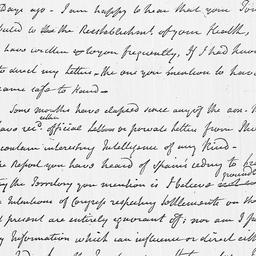 Days ago - I am happy to hear that your
to the Reestablishment of your Health,
have written to you frequently, If I had known
to direct my Letters - the one you mention to have
came safe to Hand -
Some months have elapsed since any of the
have rec.d either official Letters or private Letters from the
contain interesting Intelligence of any Kind -
The Report you have heard of Spain's ceding to
the Territory you mention is I believe ground
Intentions of Congress respecting Settlements on the
present are entirely ignorant of; nor am I
Information which can influence or direct